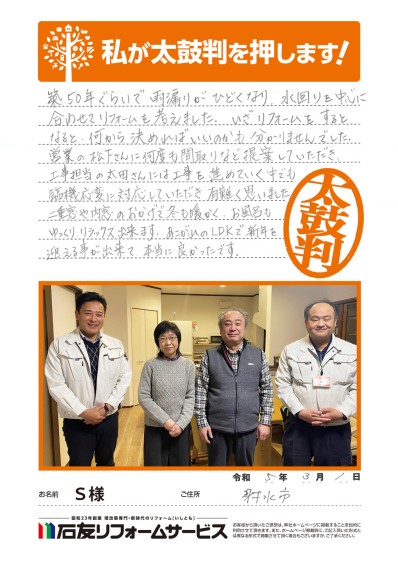 私が太鼓判を押します!
築50年ぐらいで雨漏りがひどくなり、水回りを中心に
合わせてリフォームを考えました。いざリフォームをすると
なると、何から決めればいいのかも分かりませんでした。
営業の松下さんに何度も間取りなど提案していただき、
工事担当の太田さんには工事を進めていく中でも
臨機応変に対応していただき有難く思いました
二重窓や内窓のおかげで冬も暖かく、お風呂も
ゆっくりリラックス出来ます。あこがれのLDKで新年を
迎える事が出来て、本当に良かったです。
太鼓判
令和 5年 3月 1日
お名前 S様 ご住所 射水市
昭和23年創業 増改築専門・新時代のリフォーム[いしとも]
石友リフォームサービス
お客様から頂いたご感想は、弊社ホームページに掲載することを目的に
利用させて頂きます。また、ホームページ掲載時に、ご記入頂いた形式と
は異なる形式で掲載させて頂く場合もございますが、ご了承ください。